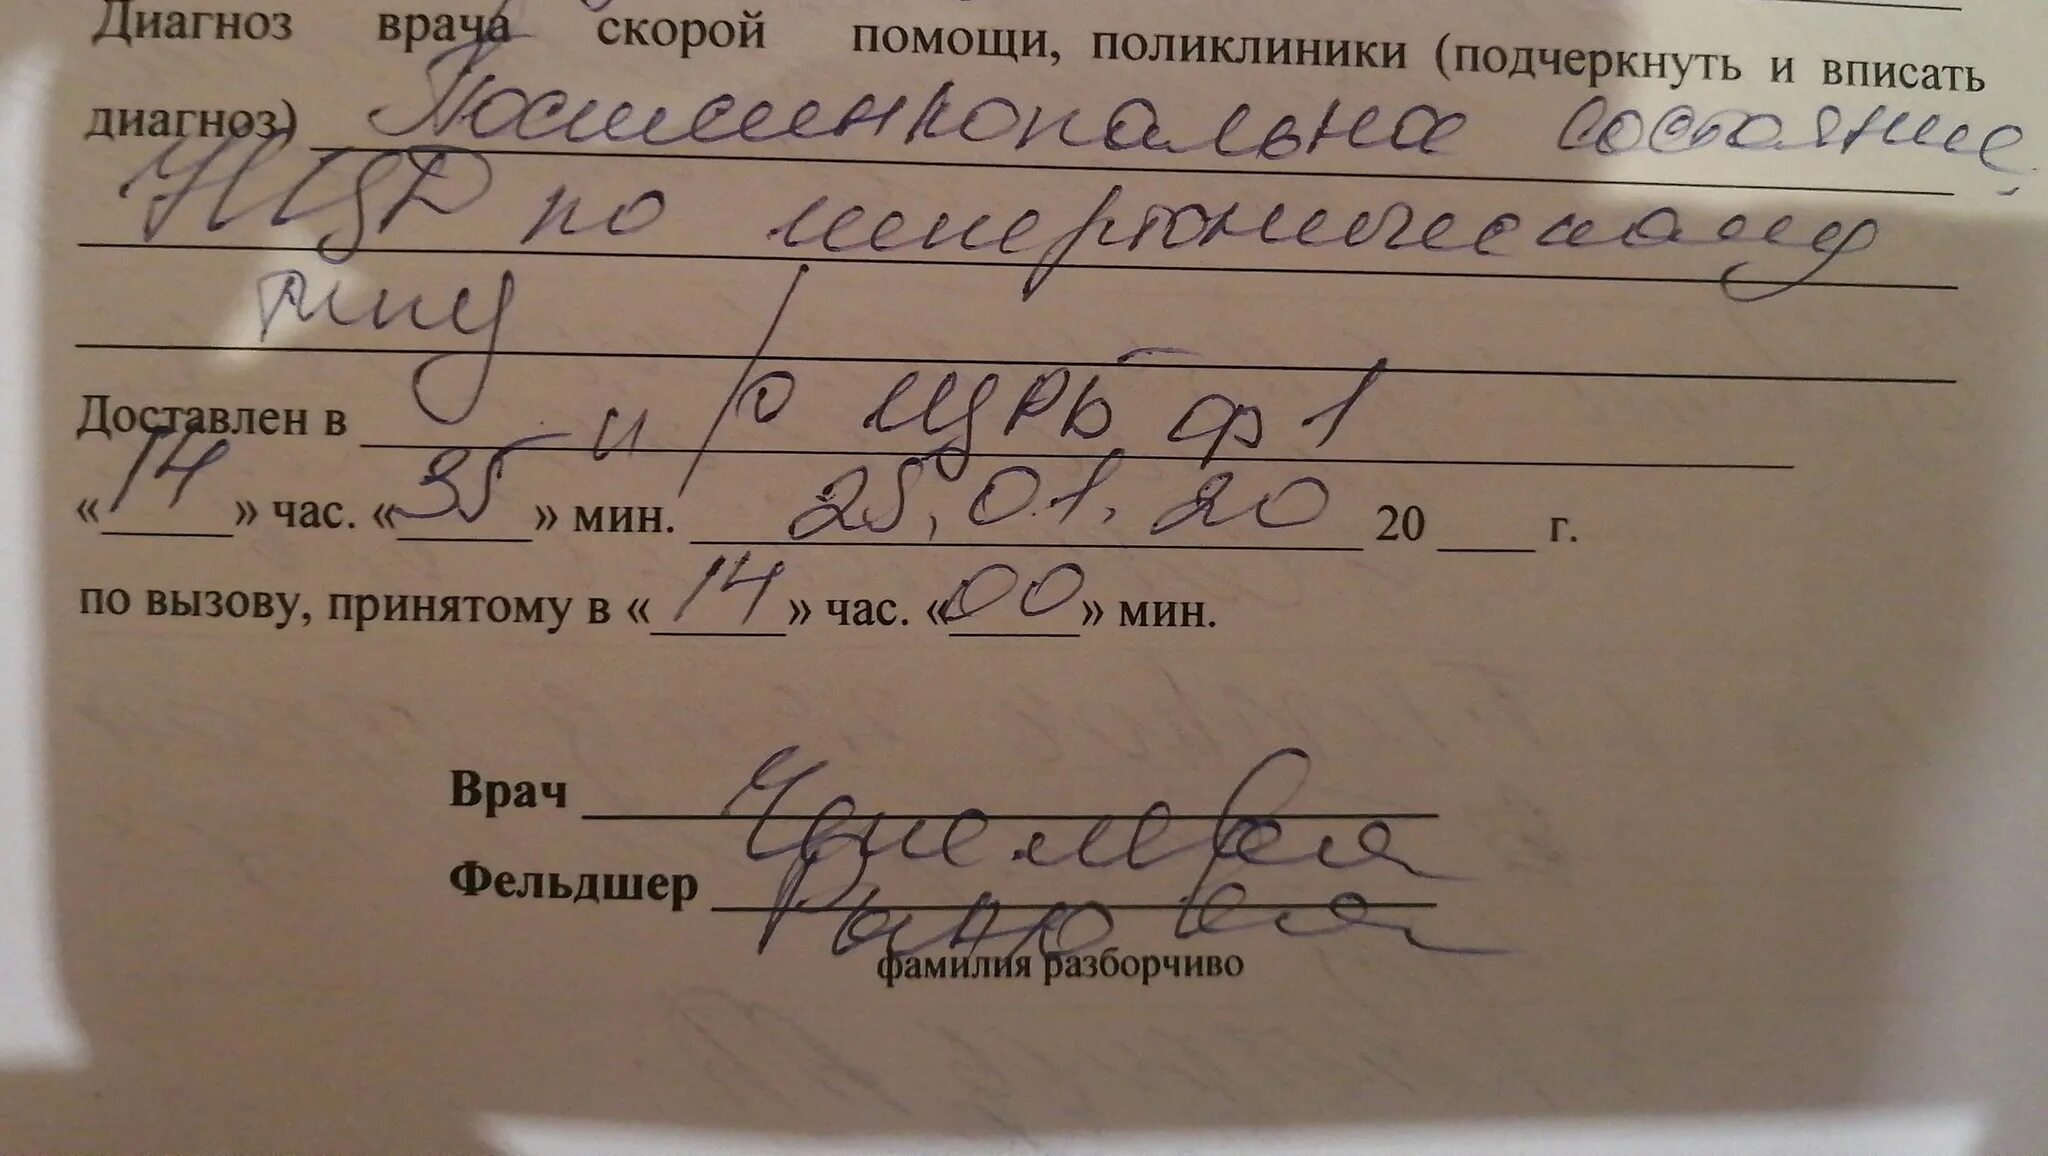 Диагноз врача скорой помощи, поликлиники (подчеркнуть и вписать
диагноз) Постсинкопальное состояние
НЦД по гипертоническому
типу
Доставлен в п/о ЦРБ ф 1
«14» час. «35» мин. 25.01.20 20 г.
по вызову, принятому в «14» час. «00» мин.
Врач
Фельдшер
фамилия разборчиво